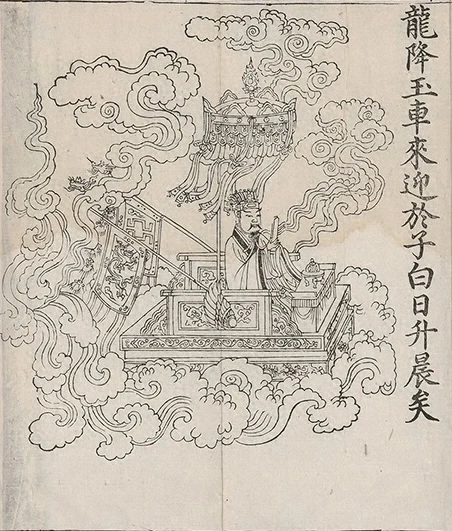 龍降玉車來迎於子白日升晨矣